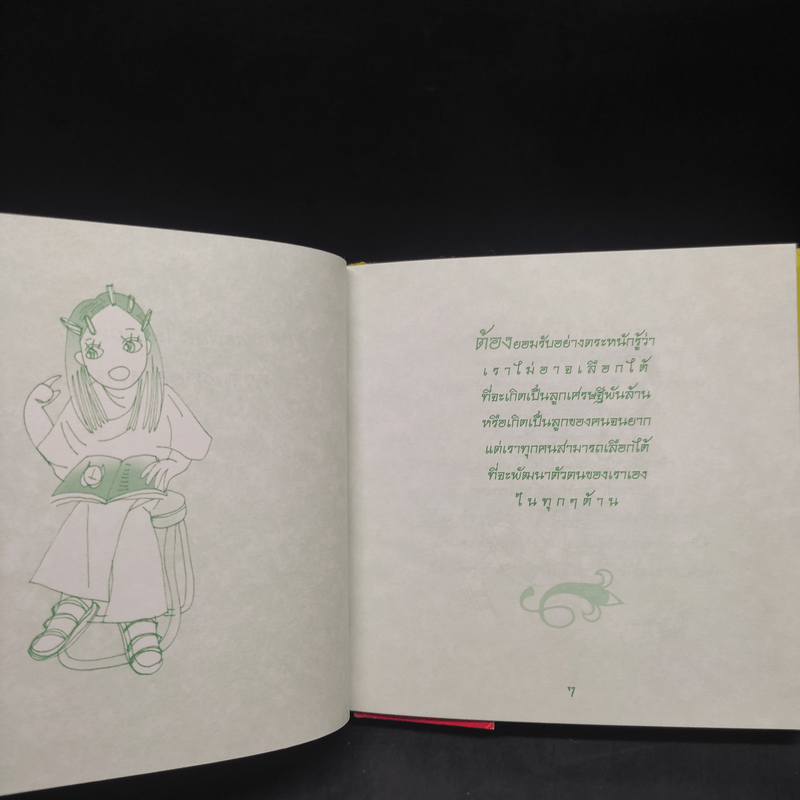 ต้องยอมรับอย่างตระหนักรู้ว่า
เราไม่อาจเลือกได้
ที่จะเกิดเป็นลูกเศรษฐีพันล้าน
หรือเกิดเป็นลูกของคนจนยาก
แต่เราทุกคนสามารถเลือกได้
ที่จะพัฒนาตัวตนของเราเอง
ในทุกๆด้าน
7